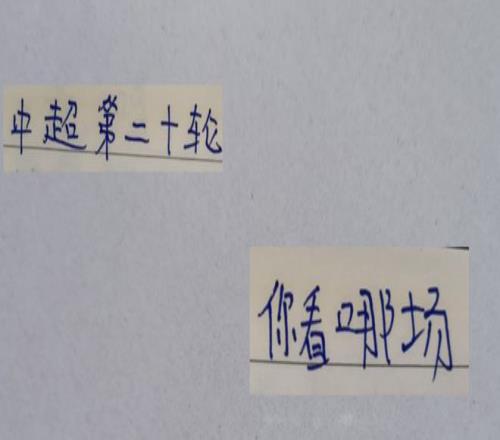 中超第二十轮
你看哪场